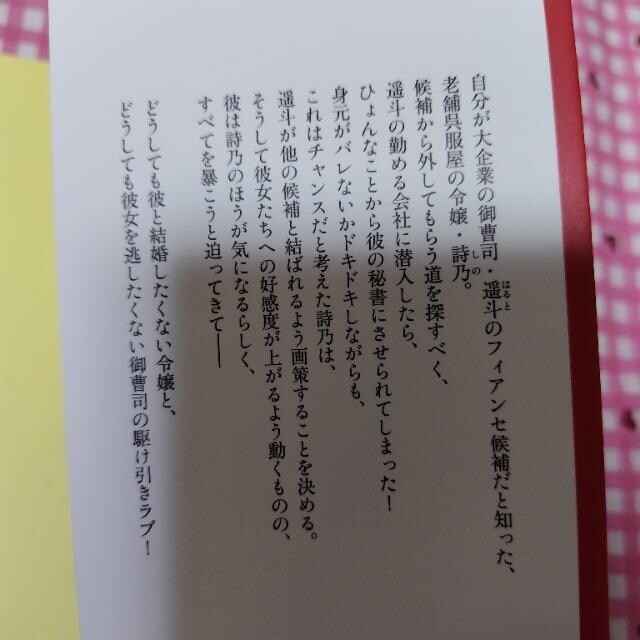 自分が大企業の御曹司・遥斗のフィアンセ候補だと知った、
はると
老舗呉服屋の令嬢・詩乃。
しの
候補から外してもらう道を探すべく、
遥斗の勤める会社に潜入したら、
ひょんなことから彼の秘書にさせられてしまった！
身元がバレないかドキドキしながらも、
これはチャンスだと考えた詩乃は、
遥斗が他の候補と結ばれるよう画策することを決める。
そうして彼女たちへの好感度が上がるよう動くものの、
彼は詩乃のほうが気になるらしく、
すべてを暴こうと迫ってきて――
どうしても彼と結婚したくない令嬢と、
どうしても彼女を逃したくない御曹司の駆け引きラブ！